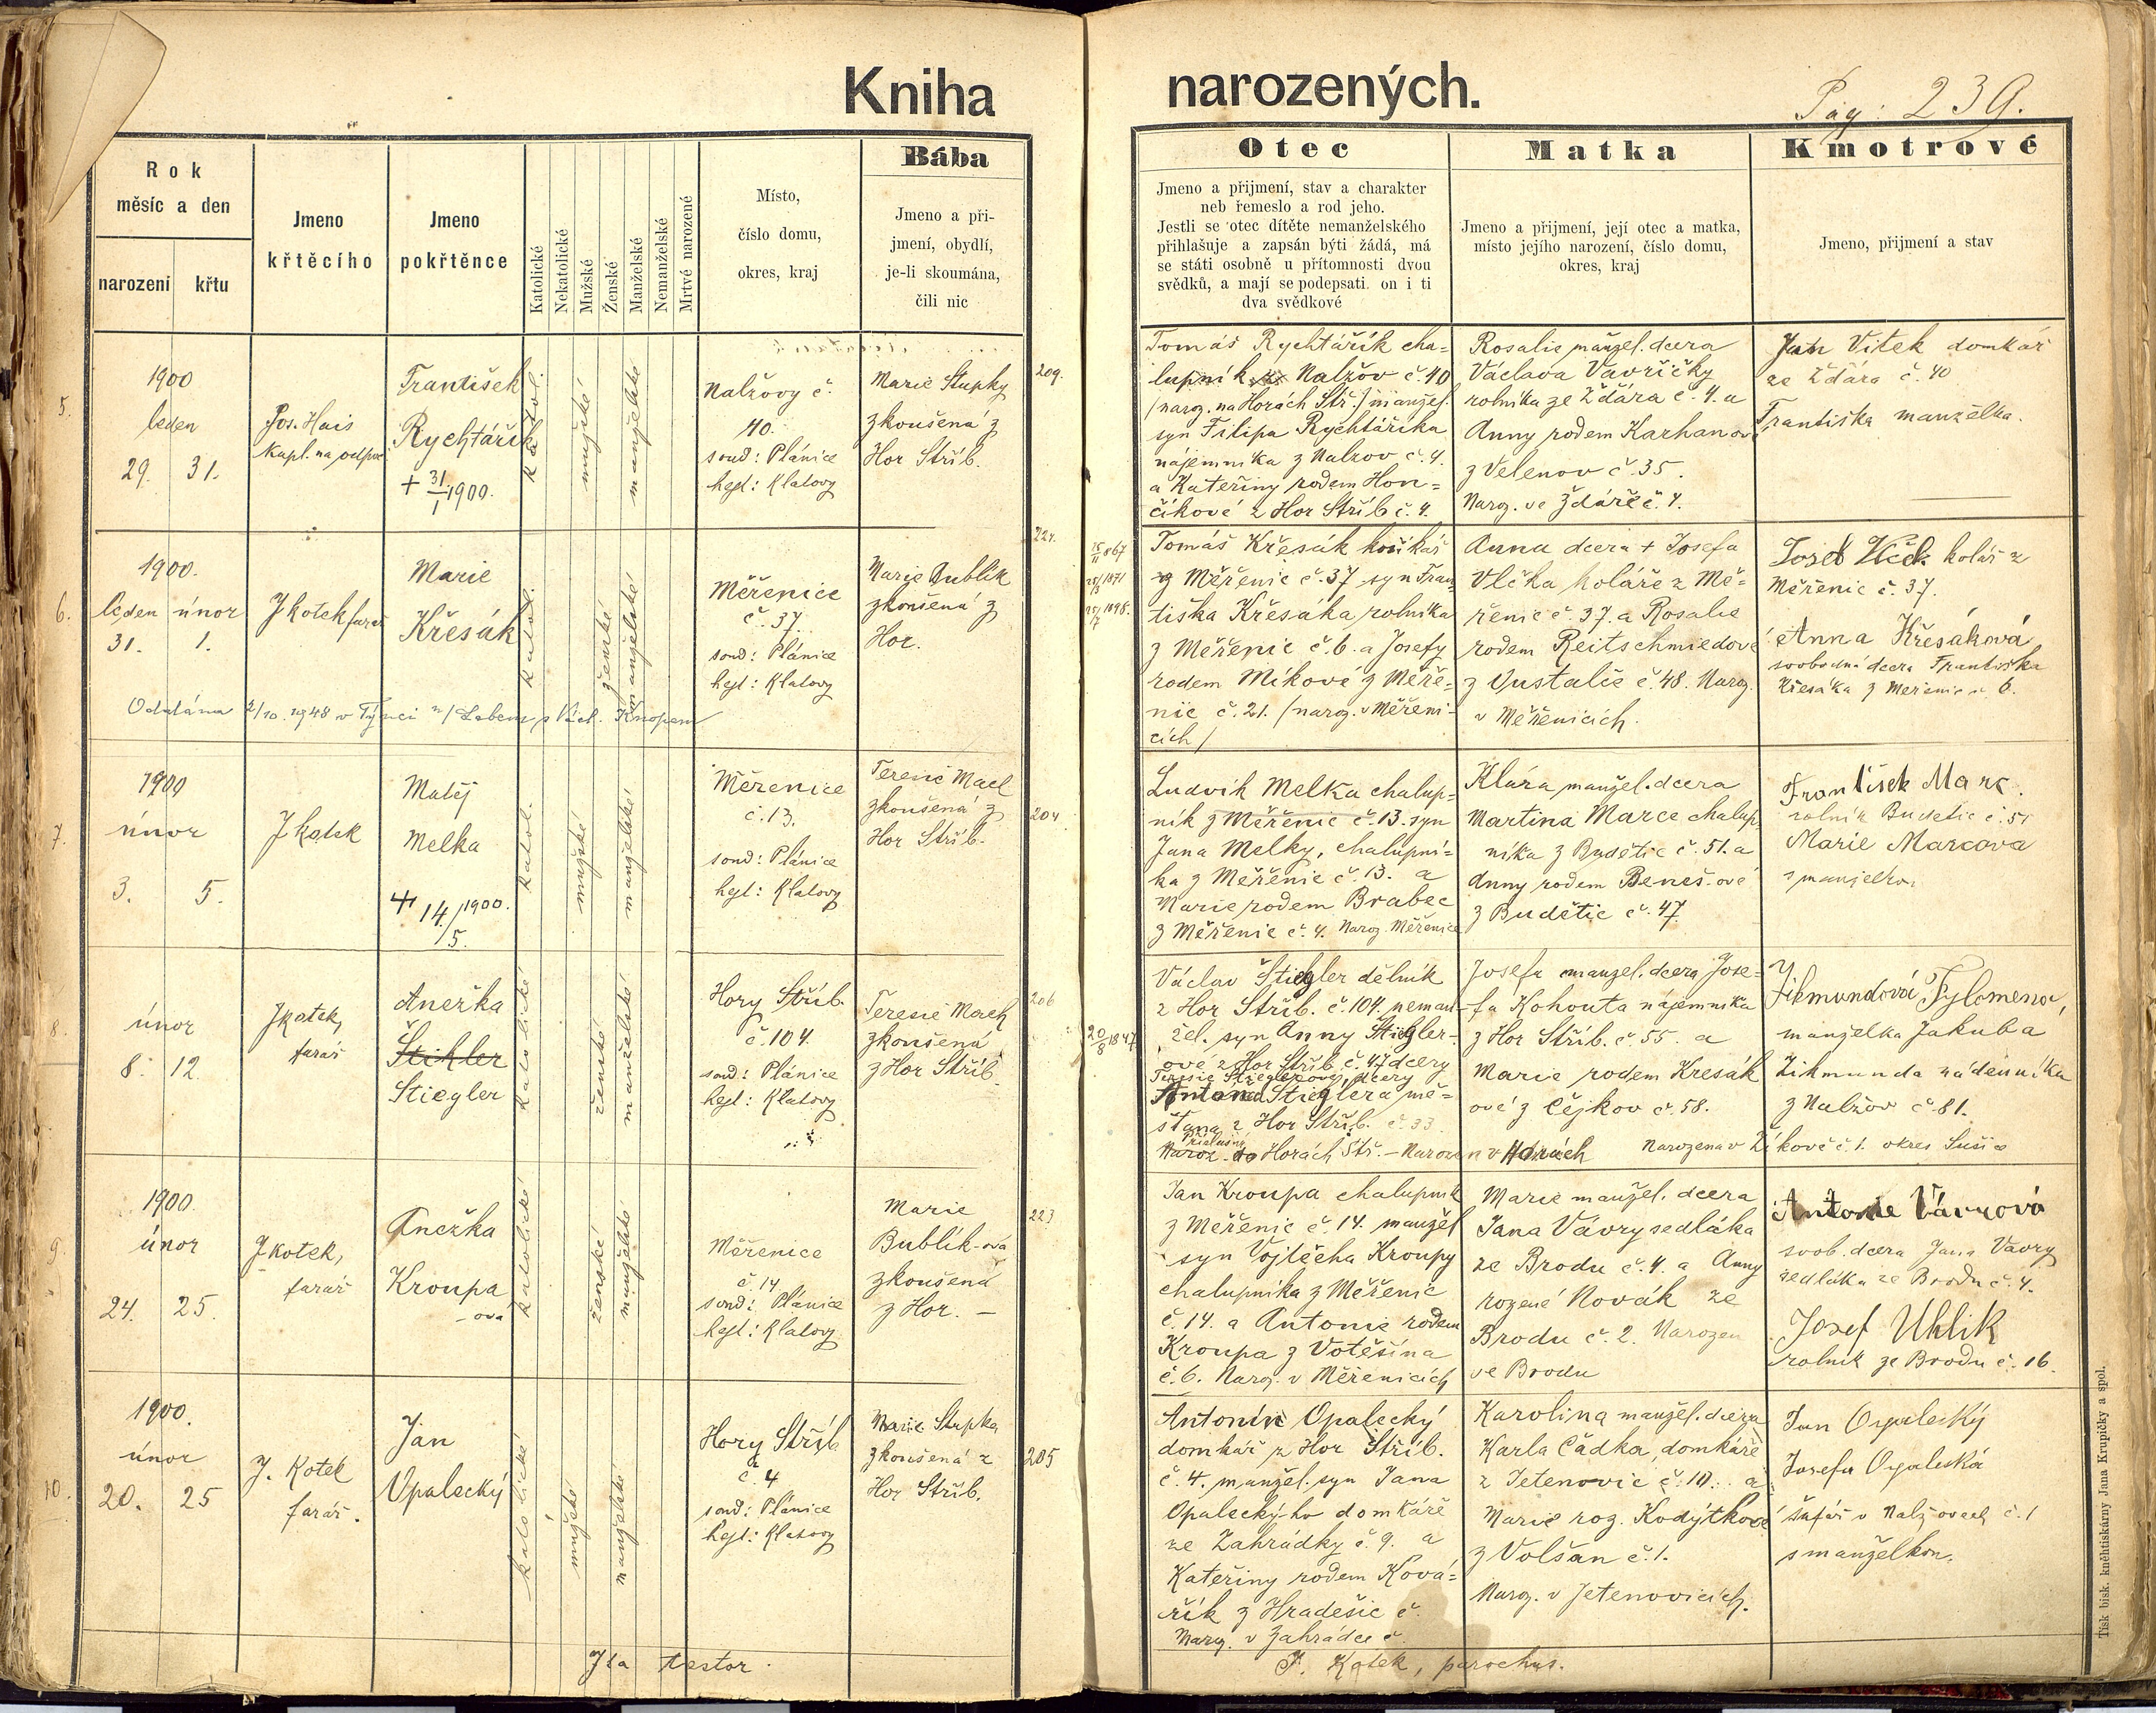 Kniha narozených.
Pag: 239.
Rok
měsíc a den
narození
křtu
Jmeno
křtěcího
Jmeno
pokřtěnce
Katolické
Nekatolické
Mužské
Ženské
Manželské
Nemanželské
Mrtvé narozené
Místo,
číslo domu,
okres, kraj
Bába
Jmeno a při-
jmení, obydlí,
je-li skoumána,
čili nic
Otec
Jmeno a přijmení, stav a charakter
neb řemeslo a rod jeho.
Jestli se otec dítěte nemanželského
přihlašuje a zapsán býti žádá, má
se státi osobně u přítomnosti dvou
svědků, a mají se podepsati on i ti
dva svědkové
Matka
Jmeno a přijmení, její otec a matka,
místo jejího narození, číslo domu,
okres, kraj
Kmotrové
Jmeno, přijmení a stav
5.
1900
leden
29. 31.
Jos. Hais
kapl. na odpoč
František
Rychtářík
+ 31/1 1900.
Katol.
mužské
manželské
Nalžovy č.
40.
soud: Plánice
hejt: Klatovy
Marie Stupky
zkoušená z
Hor Stříb.
209.
Tomáš Rychtářík cha=
lupník z Nalžov č. 40
/naroz. na Horách Stř./ manžel.
syn Filipa Rychtáříka
nájemníka z Nalžov č. 4.
a Kateřiny rodem Hon=
číkové z Hor Stříb č. 4.
Rosalie manžel. dcera
Václava Vavřičky
rolníka ze Žďára č. 4. a
Anny rodem Karhanové
z Velenov č. 35.
Naroz. ve Žďáře č. 4.
Jan Vítek domkář
ze Žďára č. 40
Františka manželka.
6.
1900.
leden únor
31. 1.
J Kotek farář
Marie
Křesák
Katol.
ženské
manželské
Měřenice
č. 37.
soud: Plánice
hejt: Klatovy
Marie Bublík
zkoušená z
Hor.
Oddána 2/10. 1948 v Týnci n/Labem s Vách. Knopem
224.
15/11 867
25/3 1871
25/7 1898.
Tomáš Křesák košíkář
z Měřenic č. 37 syn Fran=
tiška Křesáka rolníka
z Měřenic č. 6. a Josefy
rodem Míkové z Měře=
nic č. 21. /naroz. v Měřeni-
cích/
Anna dcera + Josefa
Vlčka koláře z Mě=
řenic č. 37. a Rosalie
rodem Reitschmiedové
z č. 48. Naroz.
v Měřenicích.
Josef Vlček kolář z
Měřenic č. 37.
Anna Křesáková
svobodná dcera Františka
Křesáka z Měřenic č. 6.
7.
1900
únor
3. 5.
J Kotek
Matěj
Melka
+ 14./5. 1900.
Katol.
mužské
manželské
Měřenice
č. 13.
soud: Plánice
hejt: Klatovy
Teresie Mach
zkoušená z
Hor Stříb.
204.
Ludvík Melka chalup=
ník z Měřenic č. 13. syn
Jana Melky, chalupní=
ka z Měřenic č. 13. a
Marie rodem Brabec
z Měřenic č. 4. Naroz. Měřenice
Klára manžel. dcera
Martina Marce chalup
níka z Budětic č. 51. a
Anny rodem Beneš-ové
z Budětic č. 47
František Marc.
rolník Budetic č. 51
Marie Marcova
s manželkou
8.
únor
8. 12.
J Kotek,
farář
Anežka
Štikler
Stiegler
Katolické
ženské
manželské
Hory Stříb.
č. 104.
soud: Plánice
hejt: Klatovy
Teresie Mach
zkoušená
z Hor Stříb.
206
20/8 1847
Václav Štiegler dělník
z Hor Stříb. č. 104. neman-
žel. syn Anny Stiegler-
ové z Hor Stříb. č. 47 dcery
Teresie Stieglerovy, dcery
Antona Stieglera mě=
šťana z Hor Stříb. č. 33
Příslušný
Naroz. do Horách Stř. – Narozen v Horách
Josefa manžel. dcera Jose=
fa Kohouta nájemníka
z Hor Stříb. č. 55. a
Marie rodem Kresák
ové z Čejkov č. 58.
Narozena v Žíkově č. 1. okres Sušice
Zikmundová Fylomena,
manželka Jakuba
Zikmunda nádenníka
z Nalžov č 81.
9.
1900.
únor
24. 25.
J Kotek,
farář
Anežka
Kroupa
- ová
Katolické
ženské
manželské
Měřenice
č. 14
soud: Plánice
hejt: Klatovy
Marie
Bublík-ová
zkoušená
z Hor. –
223
Jan Kroupa chalupník
z Měřenic č. 14. manžel
syn Vojtěcha Kroupy
chalupníka z Měřenic
č. 14. a Antonie rodem
Kroupa z Votěšína
č. 6. Naroz. v Měřenicích
Marie manžel. dcera
Jana Vávry sedláka
ze Brodu č. 4. a Anny
rozené Novák ze
Brodu č. 2. Narozen
ve Brodu
Antonie Vávrová
svob. dcera Jana Vavry
sedláka ze Brodu č. 4.
Josef Uhlík
rolník ze Brodu č. 16.
10.
1900.
únor
20. 25
J. Kotek
farář.
Jan
Opalecký
Katolické
mužské
manželské
Hory Stříb
č. 4
soud: Plánice
hejt: Klatovy
Marie Stupka
zkoušená z
Hor Stříb.
205
Antonín Opalecký
domkář z Hor Stříb.
č. 4. manžel. syn Jana
Opalecký-ho domkáře
ze Zahrádky č. 9. a
Kateřiny rodem Ková=
řík z Hradešic č.
Naroz. v Zahrádce č.
Karolina manžel. dcera
Karla Čádka, domkáře
z Jetenovic č. 10. a
Marie roz. Kodýtkové
z Volšan č. 1.
Naroz. v Jetenovicích.
Jan Opalecký
Josefa Opalecká
šafář v Nalžovech č. 1
s manželkou.
Ita testor.
J. Kotek, parochus.
Tisk bisk. kněhtiskárny Jana Krupičky a spol.